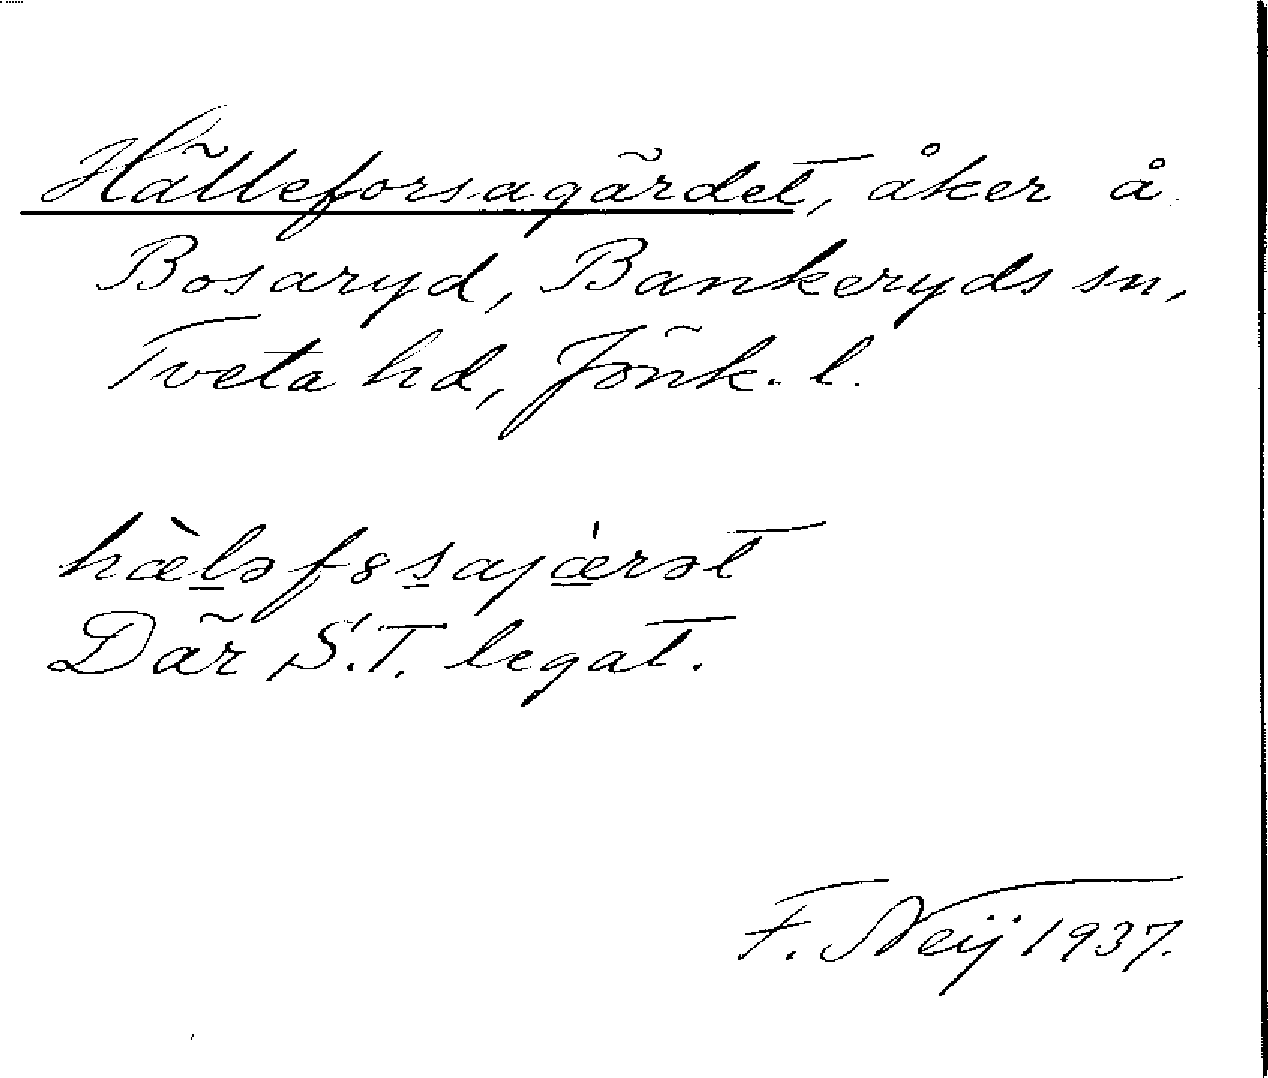 Hälleforsagärdet, åker å
Bosaryd, Bankeryds sn,
Tveta hd, Jönk. l.
hæ̀l̲əf8s̲ajǽ̲rət
Där S.T. legat.
F. Neij 1937.